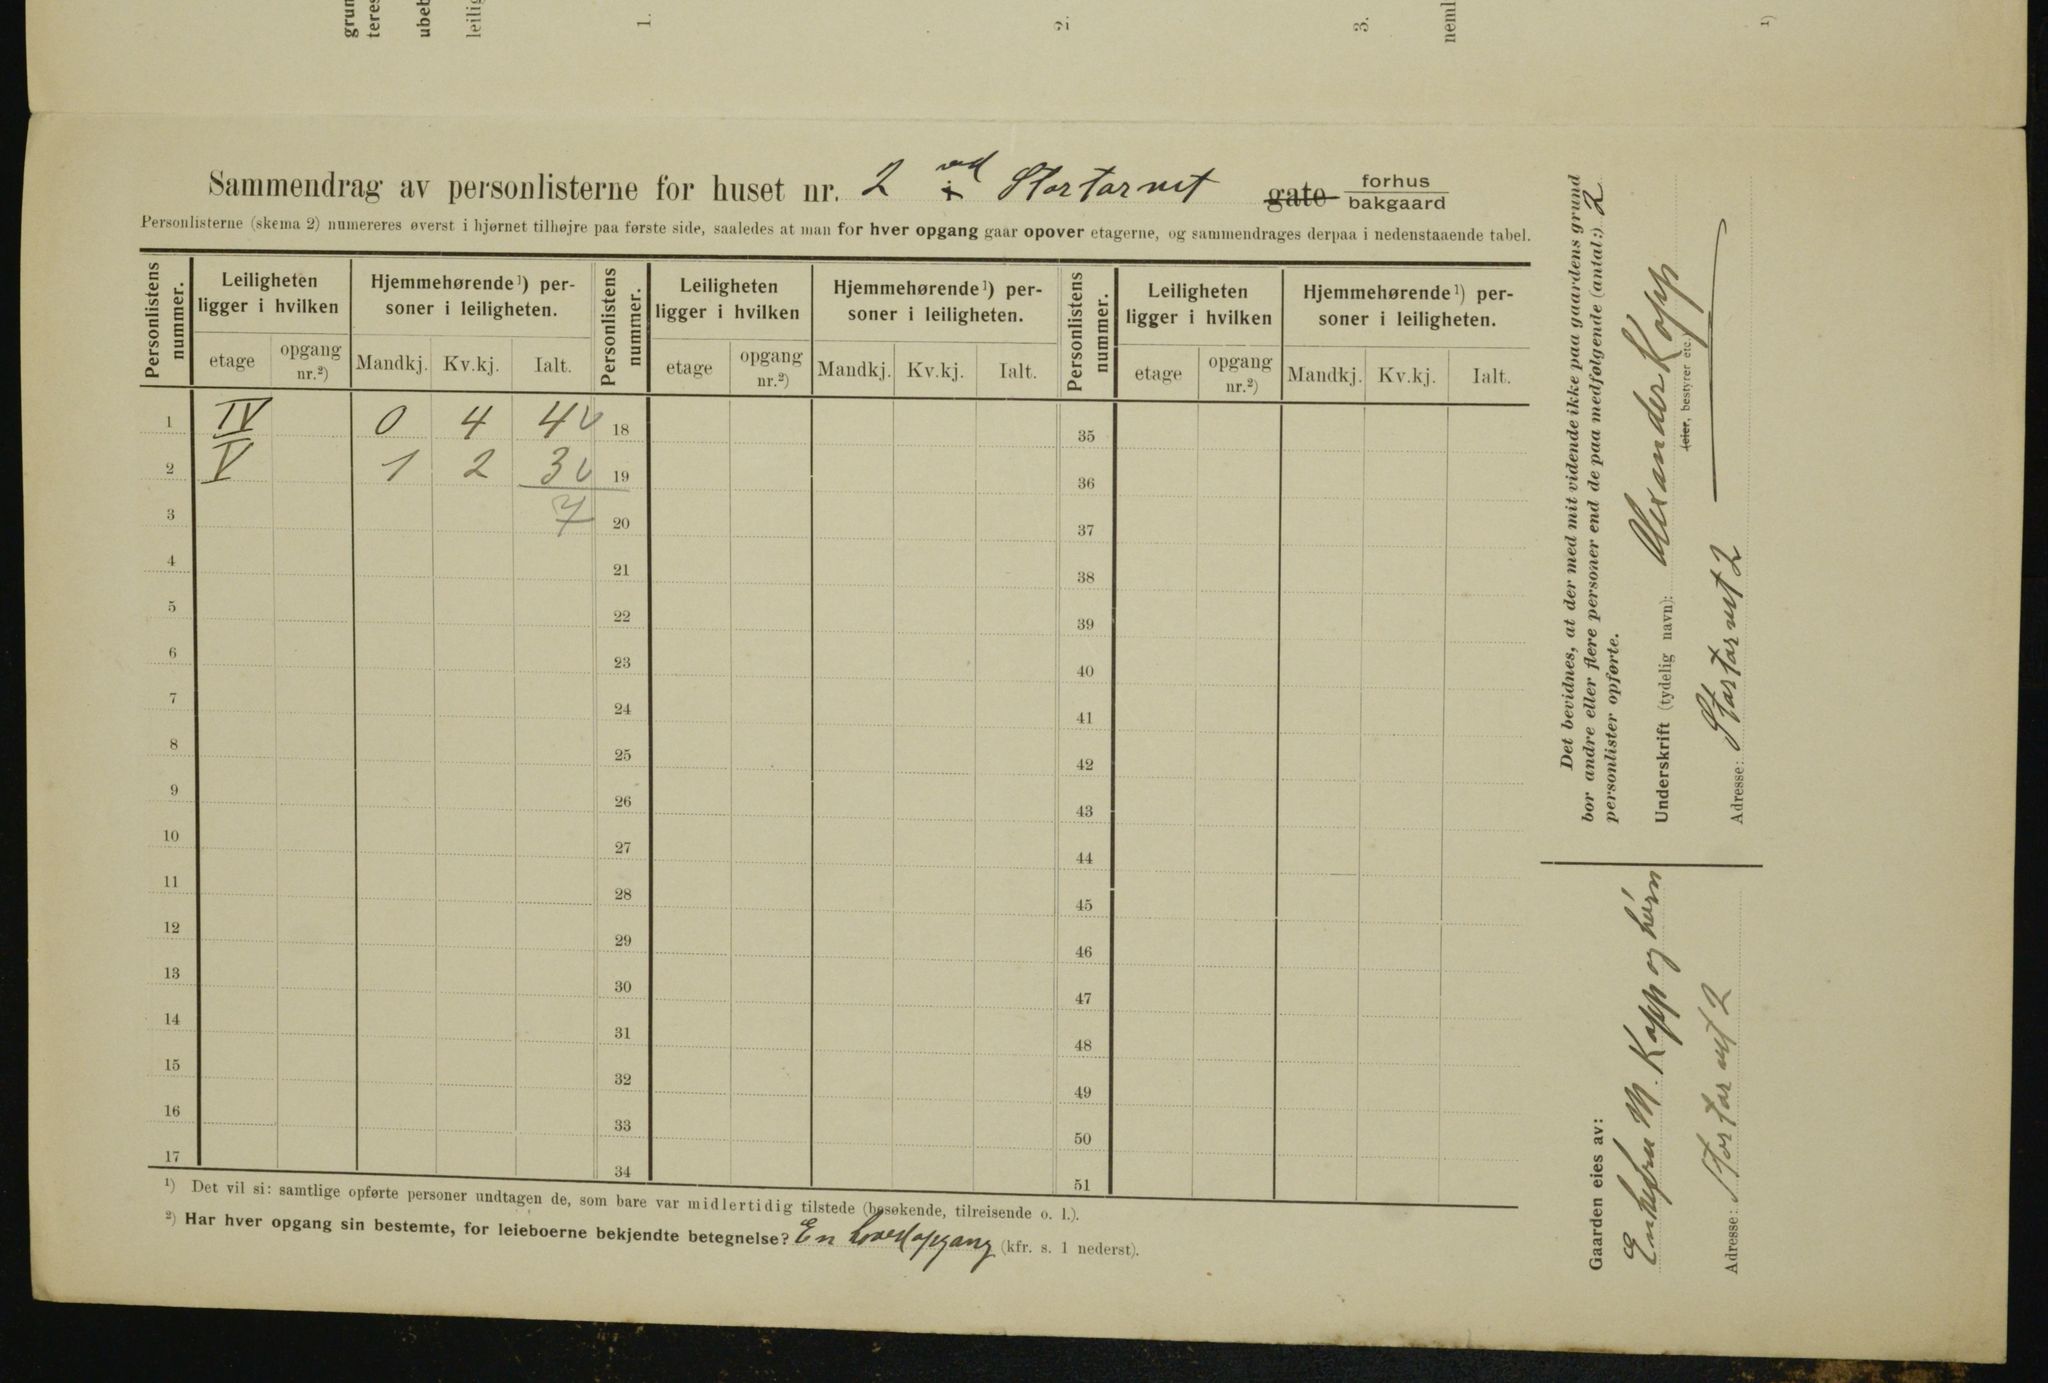 grun
teres
ubeb
leilig
1.
2.
3.
neml
1)
Sammendrag av personlisterne for huset nr. 2 i ved Stortorvet gate forhus bakgaard
Personlisterne (skema 2) numereres øverst i hjørnet tilhøjre paa første side, saaledes at man for hver opgang gaar opover etagerne, og sammendrages derpaa i nedenstaaende tabel.
Personlistens nummer. Leiligheten ligger i hvilken Hjemmehørende 1) personer i leiligheten. Personlistens nummer. Leiligheten ligger i hvilken Hjemmehørende 1) personer i leiligheten. Personlistens nummer. Leiligheten ligger i hvilken Hjemmehørende 1) personer i leiligheten.
etage opgang nr.2) Mandkj. Kv.kj. Ialt. etage opgang nr.2) Mandkj. Kv.kj. Ialt. etage opgang nr.2) Mandkj. Kv.kj. Ialt.
1 IV 0 4 4 18 35
2 V 1 2 3 19 36
3 7 20 37
4 21 38
5 22 39
6 23 40
7 24 41
8 25 42
9 26 43
10 27 44
11 28 45
12 29 46
13 30 47
14 31 48
15 32 49
16 33 50
17 34 51
1) Det vil si: samtlige opførte personer undtagen de, som bare var midlertidig tilstede (besøkende, tilreisende o. l.).
2) Har hver opgang sin bestemte, for leieboerne bekjendte betegnelse? En hovedopgang (kfr. s. 1 nederst).
Det bevidnes, at der med mit vidende ikke paa gaardens grund
bor andre eller flere personer end de paa medfølgende (antal:) 2
personlister opførte.
Underskrift (tydelig navn): Alexander Kopp
(eier, bestyrer etc.)
Adresse: Stortorvet 2
Gaarden eies av:
Enkefru M. Kopp og børn
Adresse: Stortorvet 2